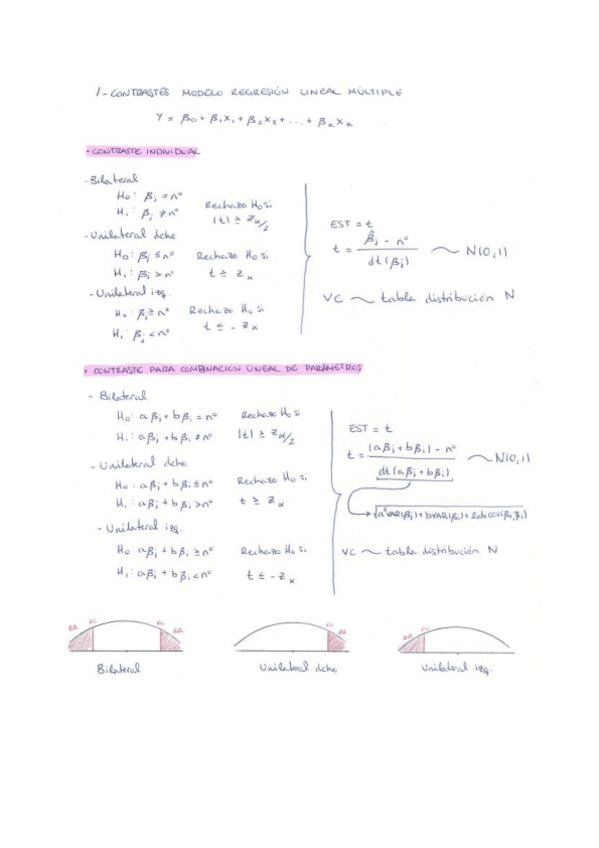 1-CONTRASTES MODELO REGRESIÓN LINEAL MÚLTIPLE
Y = β₀ + β₁X₁ + β₂X₂ + ... + βₖXₖ
• CONTRASTE INDIVIDUAL
- Bilateral
H₀: βⱼ = nº
H₁: βⱼ ≠ nº
Rechazo H₀ si
|t| ≥ Z α/2
- Unilateral dcho
H₀: βⱼ ≤ nº
H₁: βⱼ > nº
Rechazo H₀ si
t ≥ Z α
- Unilateral izq.
H₀: βⱼ ≥ nº
H₁: βⱼ < nº
Rechazo H₀ si
t ≤ - Z α
EST = t
t = (β̂ⱼ - nº) / dt(βⱼ) ~ N(0,1)
VC ~ tabla distribución N
• CONTRASTE PARA COMBINACIÓN LINEAL DE PARÁMETROS
- Bilateral
H₀: aβⱼ + bβᵢ = nº
H₁: aβⱼ + bβᵢ ≠ nº
Rechazo H₀ si
|t| ≥ Z α/2
- Unilateral dcho
H₀: aβⱼ + bβᵢ ≤ nº
H₁: aβⱼ + bβᵢ > nº
Rechazo H₀ si
t ≥ Z α
- Unilateral izq.
H₀: aβⱼ + bβᵢ ≥ nº
H₁: aβⱼ + bβᵢ < nº
Rechazo H₀ si
t ≤ - Z α
EST = t
t = ((aβⱼ + bβᵢ) - nº) / dt(aβⱼ + bβᵢ) ~ N(0,1)
√a²VAR(βⱼ) + bVAR(βᵢ) + 2ab cov(βᵢ, βⱼ)
VC ~ tabla distribución N
RR VC VC RR
Bilateral
VC RR
Unilateral dcho
RR VC
Unilateral izq.